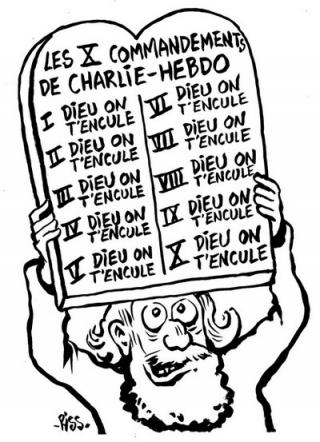 LES X COMMANDEMENTS
DE CHARLIE-HEBDO
I DIEU ON
T'ENCULE
II DIEU ON
T'ENCULE
III DIEU ON
T'ENCULE
IV DIEU ON
T'ENCULE
V DIEU ON
T'ENCULE
VI DIEU ON
T'ENCULE
VII DIEU ON
T'ENCULE
VIII DIEU ON
T'ENCULE
IX DIEU ON
T'ENCULE
X DIEU ON
T'ENCULE
-RISS.